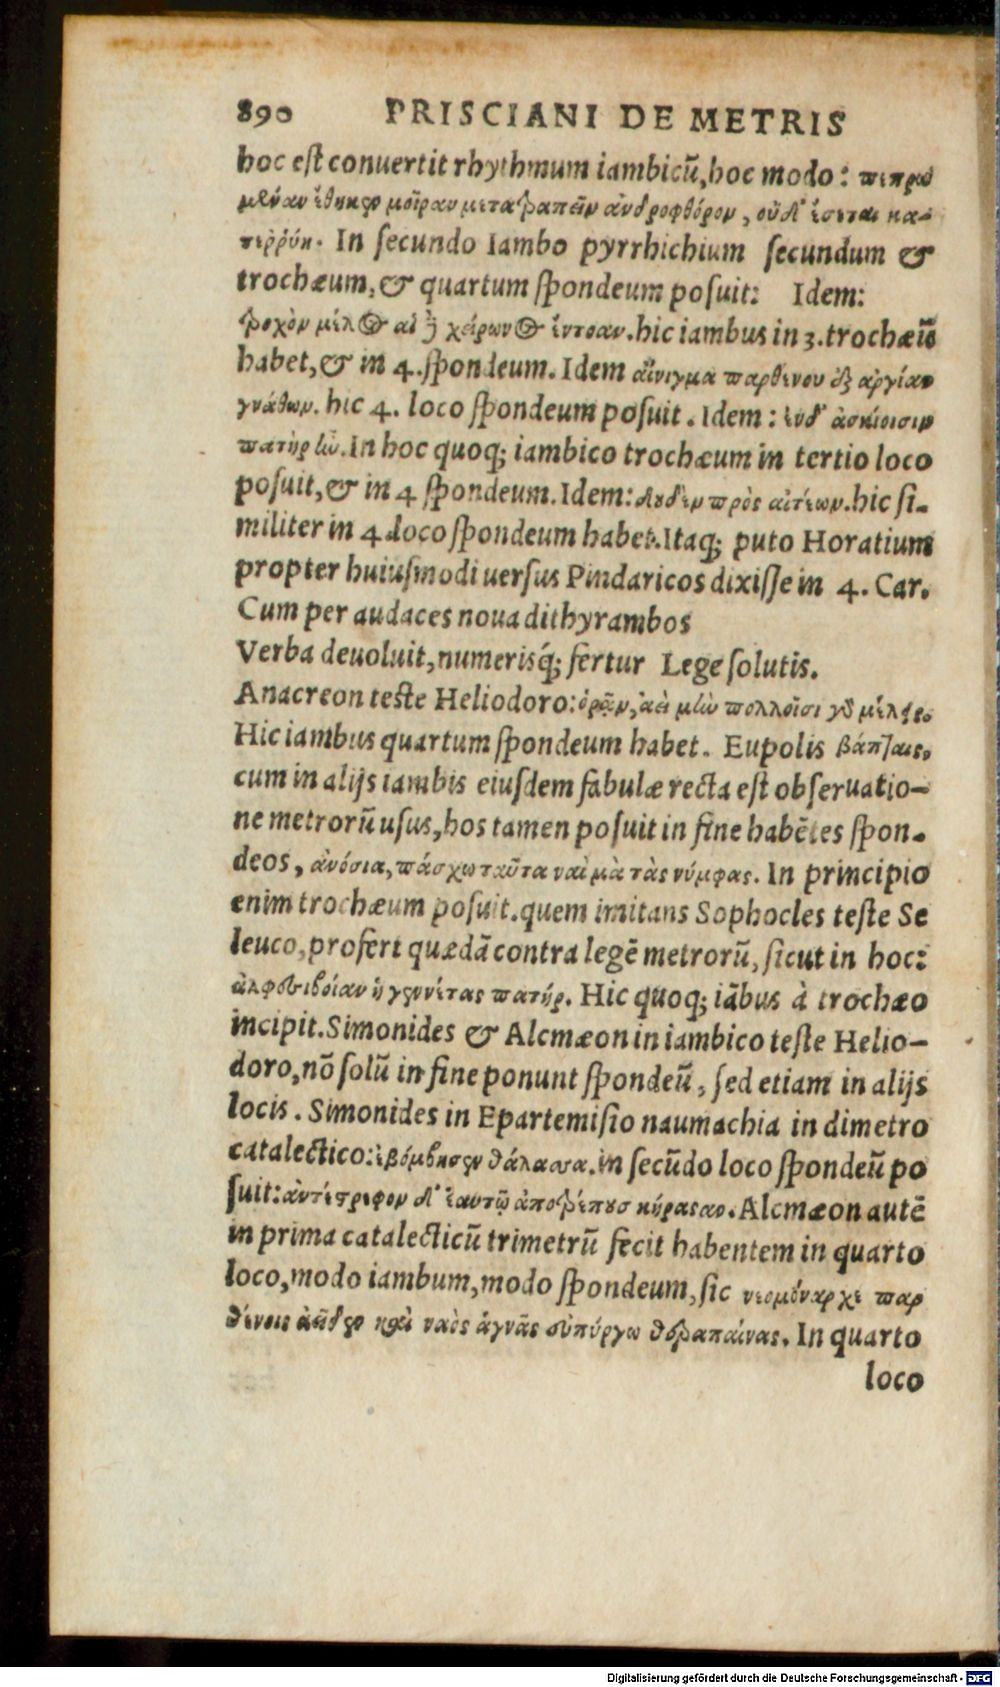 890 PRISCIANI DE METRIS
hoc est conuertit rhythmum iambicũ, hoc modo: πεπρω
μέναν ἔθηκεν μοῖραν μετατραπεῖν ἀνδροφθόρον, οὐδ' ἔσεται κα-
In secundo Iambo pyrrhichium secundum &
trochæum, & quartum spondeum posuit: Idem:
hic iambus in 3. trochæũ
habet, & in 4. spondeum. Idem αἴνιγμα παρθένου ἐξ ἀργίαν
γνάθων. hic 4. loco spondeum posuit. Idem: ἐνδ' ἀσκίοισιν
πατήρ. In hoc quoq; iambico trochæum in tertio loco
posuit, & in 4 spondeum. Idem: πρὸς αἰτέων. hic si-
militer in 4 loco spondeum habet. Itaq; puto Horatium
propter huiusmodi uersus Pindaricos dixisse in 4. Car.
Cum per audaces noua dithyrambos
Verba deuoluit, numerisq́; fertur Lege solutis.
Anacreon teste Heliodoro: ὁρᾷν, ἀεὶ πολλοῖσι
Hic iambus quartum spondeum habet. Eupolis βάπταις,
cum in alijs iambis eiusdem fabulæ recta est obseruatio-
ne metrorũ usus, hos tamen posuit in fine habẽtes spon-
deos, ἀνόσια, πάσχω ταῦτα ναὶ μὰ τὰς νύμφας. In principio
enim trochæum posuit. quem imitans Sophocles teste Se
leuco, profert quædã contra legẽ metrorũ, sicut in hoc:
ἀλφεσίβοιαν ἡ γεννέτας πατήρ. Hic quoq; iãbus à trochæo
incipit. Simonides & Alcmæon in iambico teste Helio-
doro, nõ solũ in fine ponunt spondeũ, sed etiam in alijs
locis. Simonides in Epartemisio naumachia in dimetro
catalectico: ἐβόμβησεν θάλασσα. in secũdo loco spondeũ po
suit: Alcmæon autẽ
in prima catalecticũ trimetrũ fecit habentem in quarto
loco, modo iambum, modo spondeum, sic νεομόναρχε παρ
θένοις ναὸς ἁγνᾶς θεραπαίνας. In quarto
loco
Digitalisierung gefördert durch die Deutsche Forschungsgemeinschaft - DFG